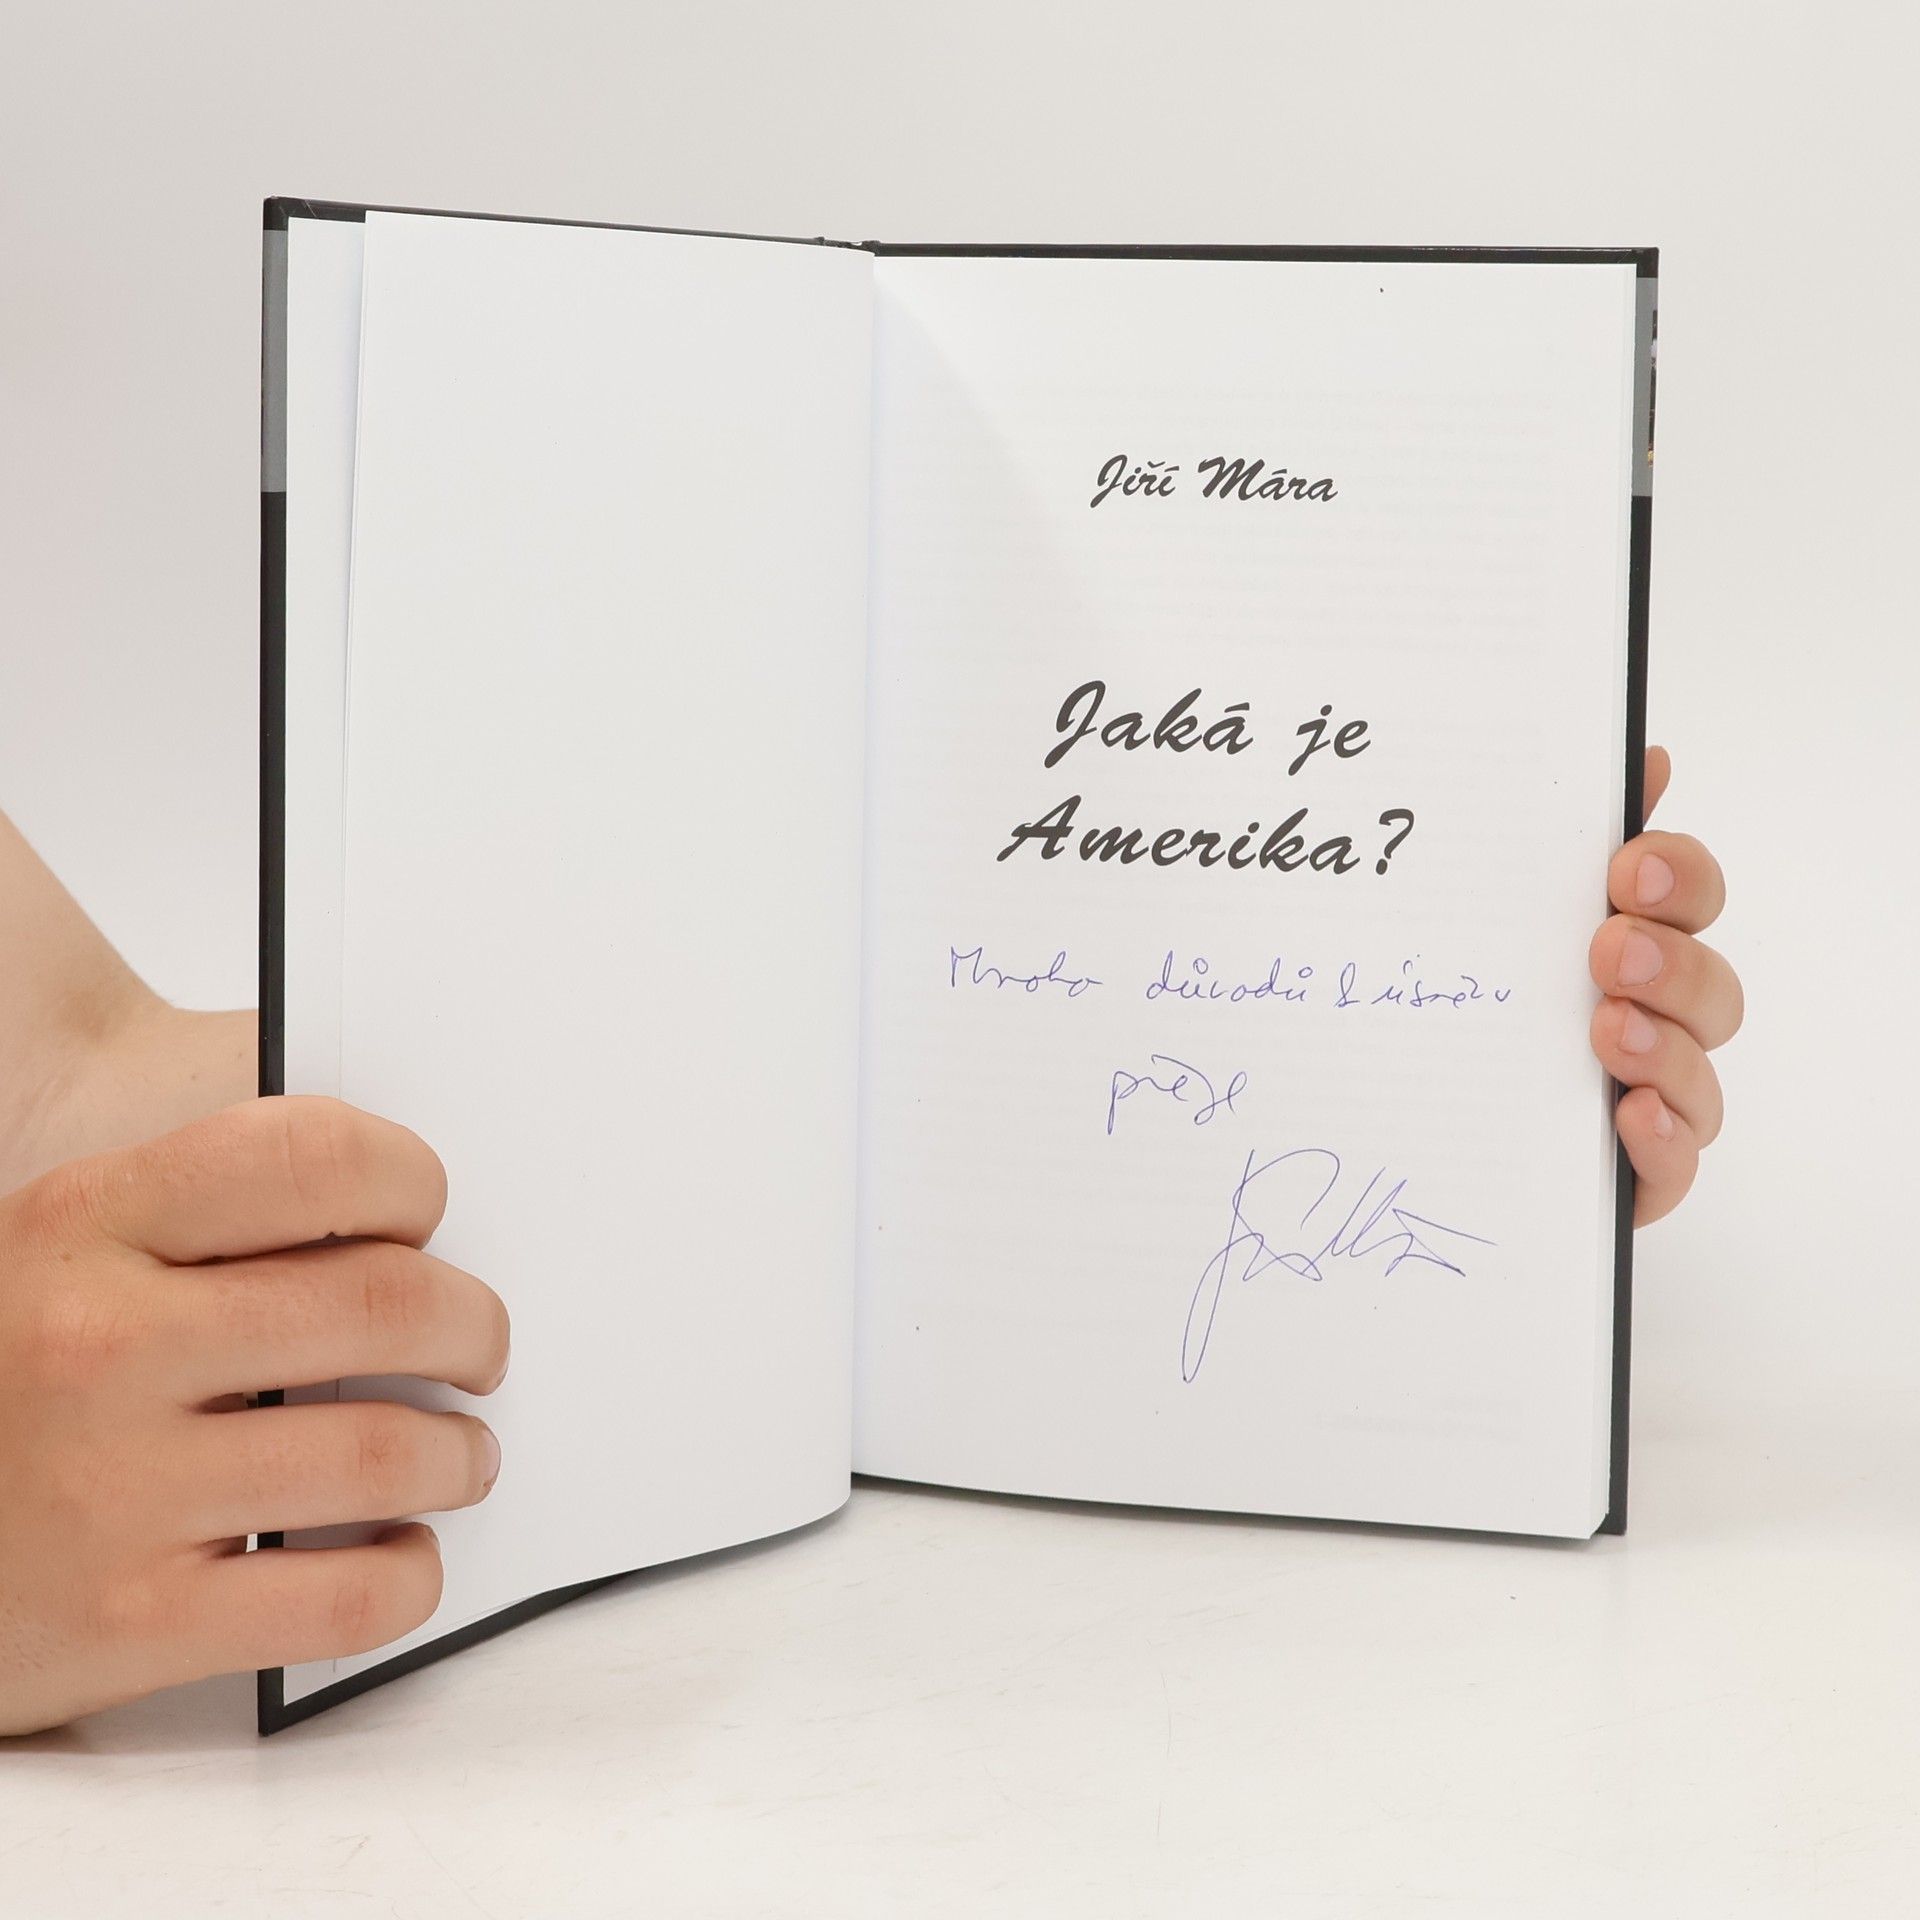 Jiří Mára
Jaká je
Amerika?
Mnoho důvodů k úsměvu
přeje